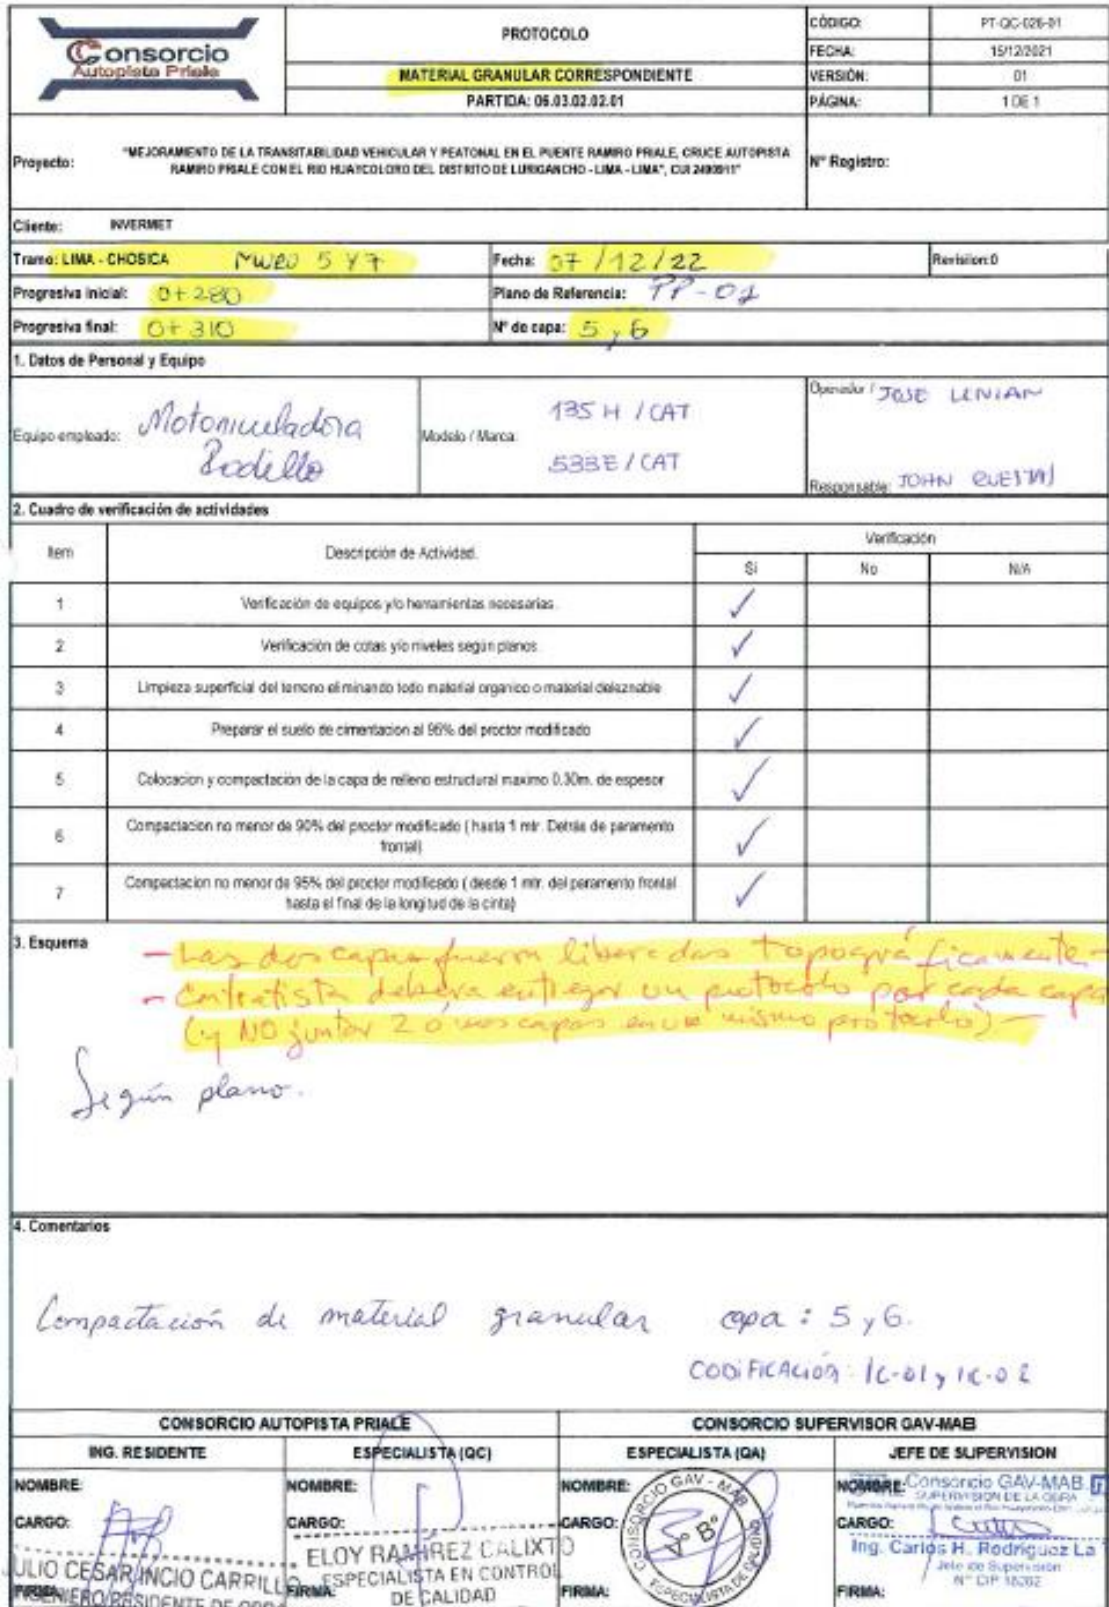 Consorcio
Autopista Priale
PROTOCOLO
MATERIAL GRANULAR CORRESPONDIENTE
PARTIDA: 06.03.02.02.01
CÓDIGO: PT-QC-026-01
FECHA: 15/12/2021
VERSIÓN: 01
PÁGINA: 1 DE 1
Proyecto:
"MEJORAMIENTO DE LA TRANSITABILIDAD VEHICULAR Y PEATONAL EN EL PUENTE RAMIRO PRIALE, CRUCE AUTOPISTA
RAMIRO PRIALE CON EL RIO HUAYCOLORO DEL DISTRITO DE LURIGANCHO - LIMA - LIMA", CUI
N° Registro:
Cliente: INVERMET
Tramo: LIMA - CHOSICA MURO 5 Y 7
Fecha: 07/12/22
Revision: 0
Progresiva inicial: 0+280
Plano de Referencia: PP-01
Progresiva final: 0+310
N° de capa: 5 y 6
1. Datos de Personal y Equipo
Equipo empleado: Motoniveladora
Rodillo
Modelo / Marca: 135 H / CAT
533E / CAT
Operador / JOSE
Responsable: JOHN
2. Cuadro de verificación de actividades
Item
Descripción de Actividad.
Verificación
Si
No
N/A
1 Verificación de equipos y/o herramientas necesarias. ✓
2 Verificación de cotas y/o niveles según planos ✓
3 Limpieza superficial del terreno eliminando todo material organico o material deleznable ✓
4 Preparar el suelo de cimentacion al 95% del proctor modificado ✓
5 Colocacion y compactación de la capa de relleno estructural maximo 0.30m. de espesor ✓
6 Compactacion no menor de 90% del proctor modificado ( hasta 1 mtr. Detrás de paramento
frontal) ✓
7 Compactacion no menor de 95% del proctor modificado ( desde 1 mtr. del paramento frontal
hasta el final de la longitud de la cinta) ✓
3. Esquema
- Las dos capas fueron liberadas topográficamente-
- Contratista deberá entregar un protocolo por cada capa
(y NO juntar 2 ó mas capas en un mismo protocolo)-
Según plano.
4. Comentarios
Compactación de material granular capa: 5 y 6.
CODIFICACIÓN:
CONSORCIO AUTOPISTA PRIALE
CONSORCIO SUPERVISOR GAV-MAB
ING. RESIDENTE
ESPECIALISTA (QC)
ESPECIALISTA (QA)
JEFE DE SUPERVISION
NOMBRE:
CARGO:
JULIO CESAR INCIO CARRILLO
INGENIERO RESIDENTE DE OBRA
FIRMA:
NOMBRE:
CARGO:
ELOY RAMIREZ CALIXTO
ESPECIALISTA EN CONTROL
DE CALIDAD
FIRMA:
NOMBRE:
CARGO:
CONSORCIO GAV - MAB
V° B°
FIRMA:
NOMBRE:
Consorcio GAV-MAB
SUPERVISION DE LA OBRA
CARGO:
Ing. Carlos H. Rodriguez La
Jefe de Supervisión
FIRMA: